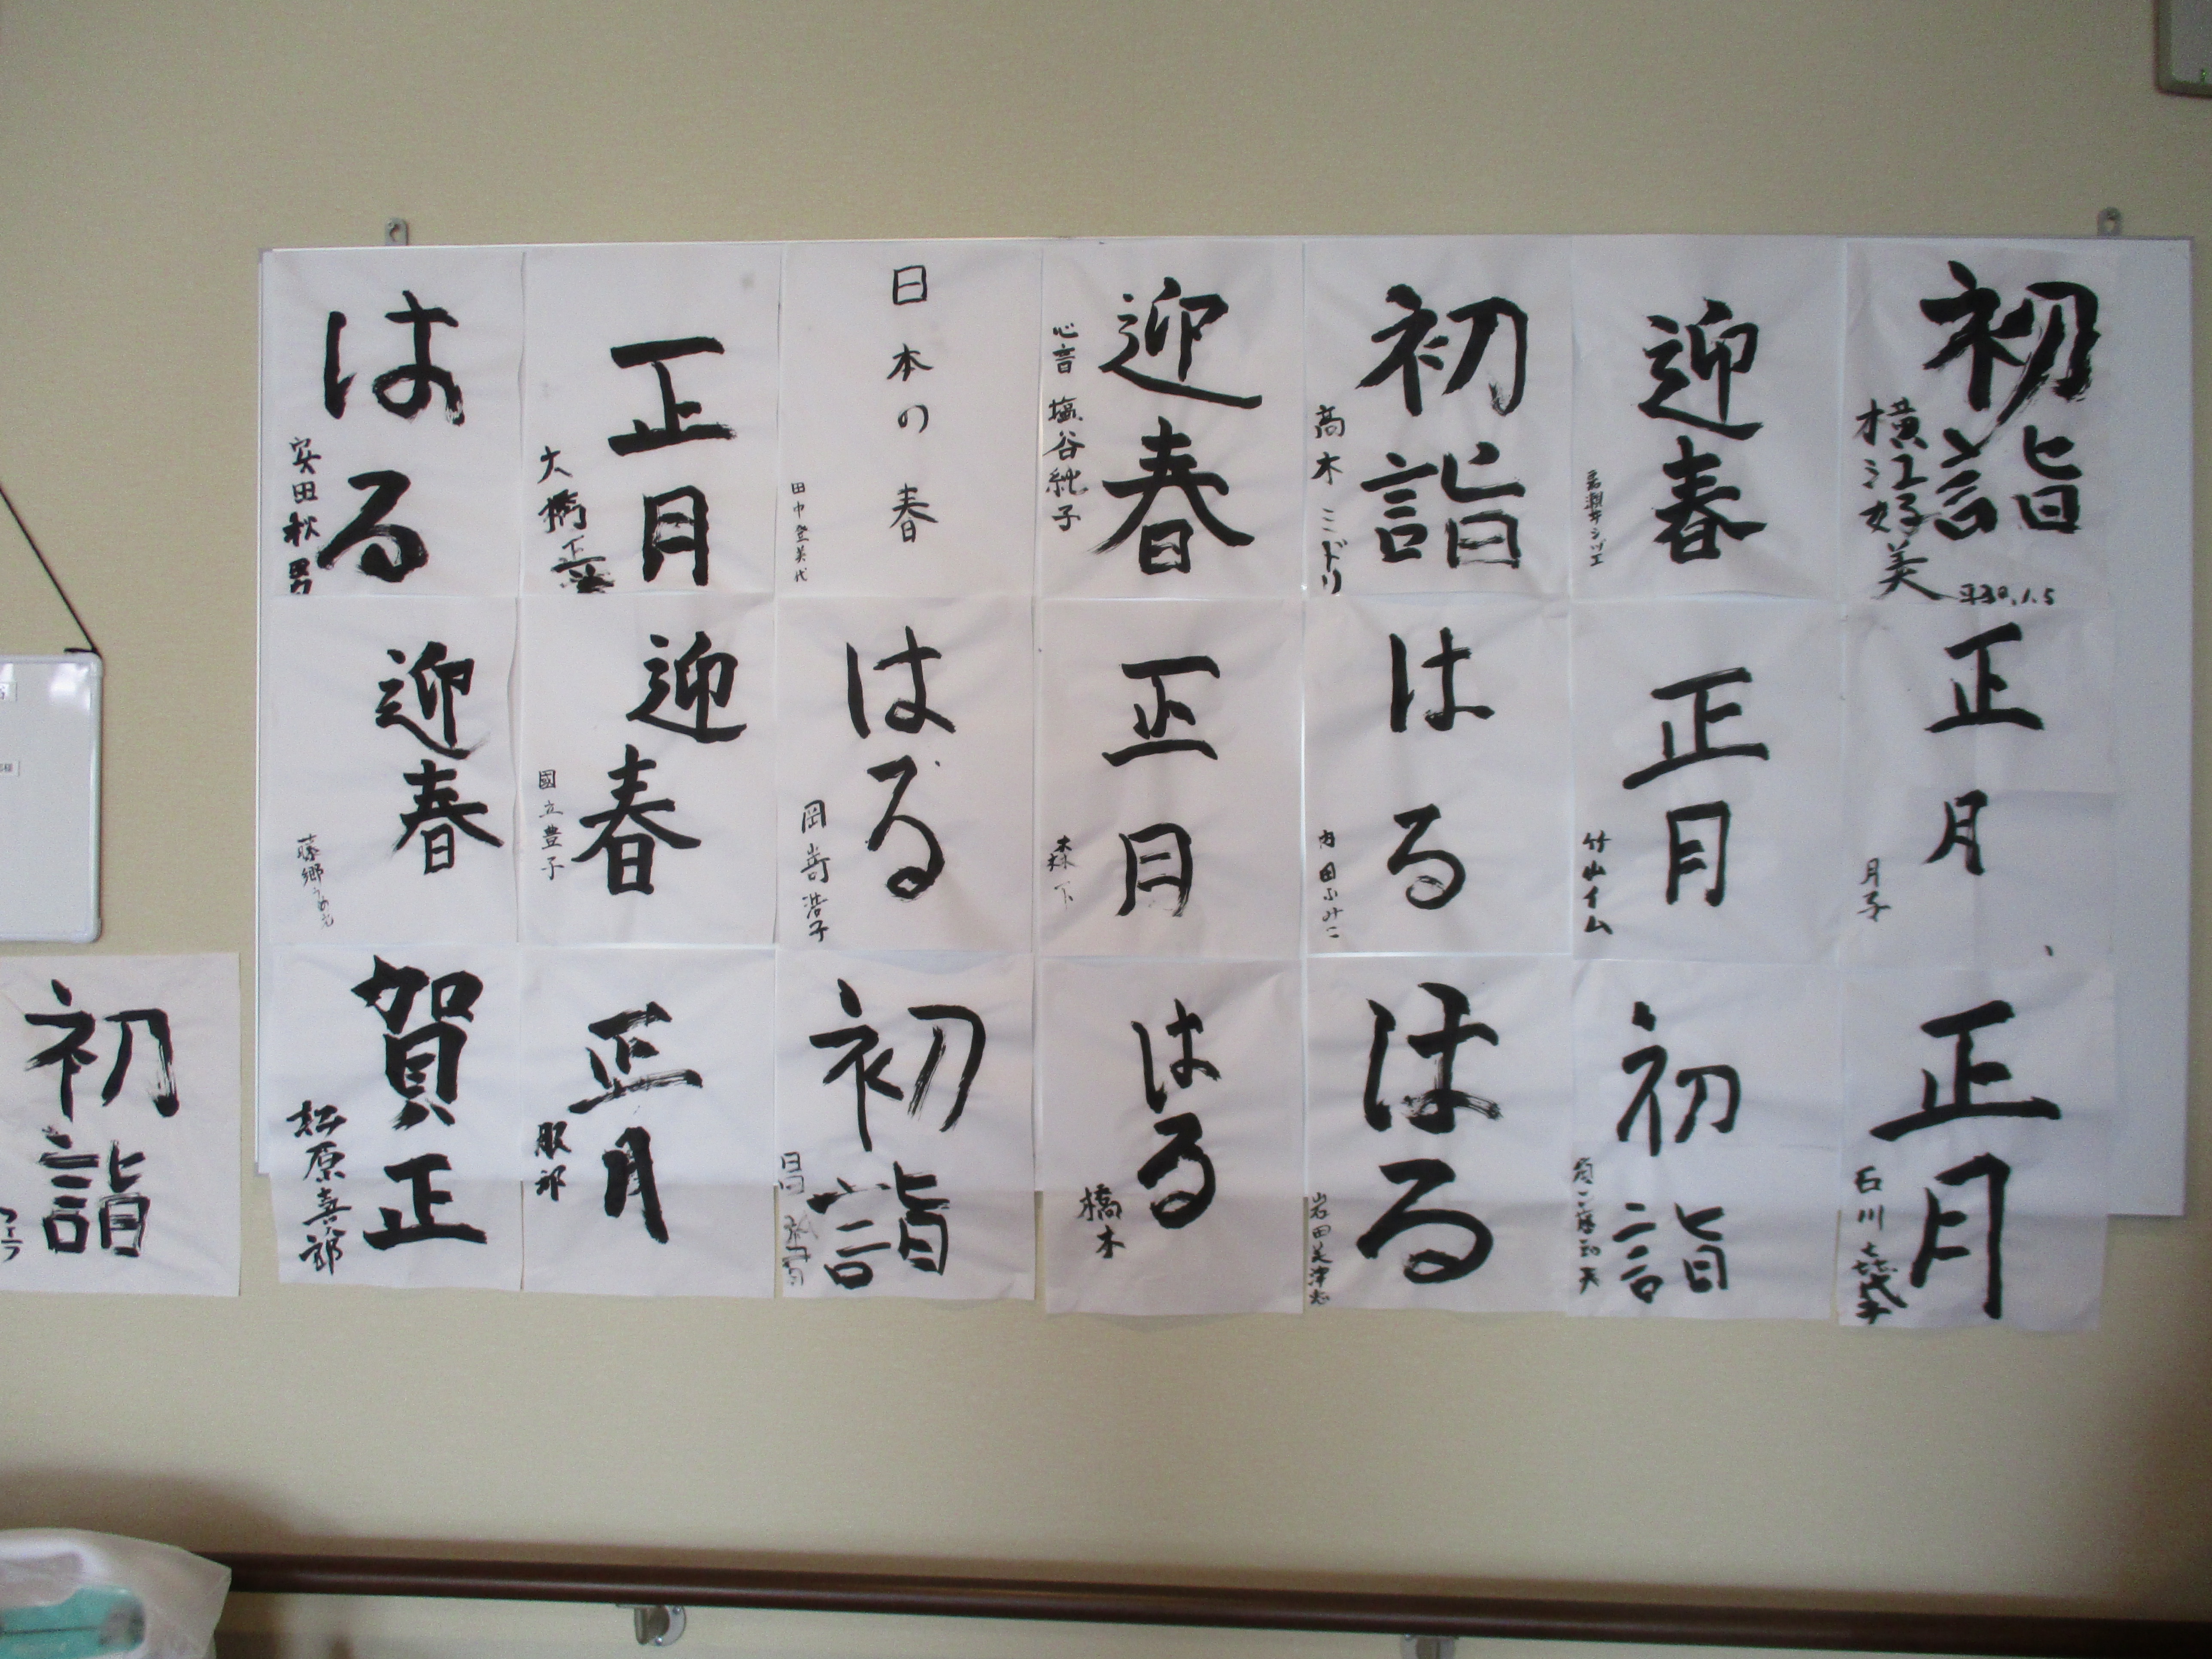 初詣
横江好美
平30.1.5
迎春
初詣
高木ミドリ
迎春
心音 塩谷純子
日本の春
田中登美代
正月
大橋正
はる
安田秋男
正月
月子
正月
竹山イム
はる
内田ふみこ
正月
森下
はる
岡嵜浩子
迎春
國立豊子
迎春
藤郷
正月
石川
初詣
はる
岩田美津恵
はる
橋本
初詣
正月
服部
賀正
松原喜八郎
初詣